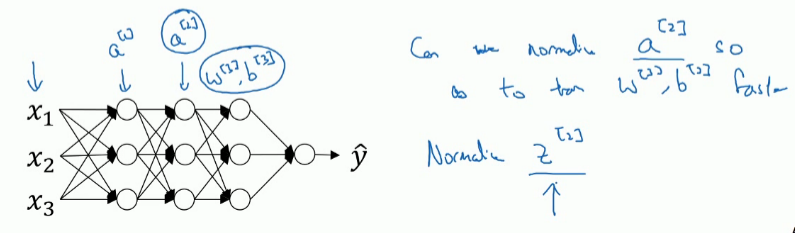 a^[1] a^[2] w^[3], b^[3]
x₁
x₂ ŷ
x₃
Can we normalize a^[2] so
as to train w^[3], b^[3] faster
Normalize z^[2]